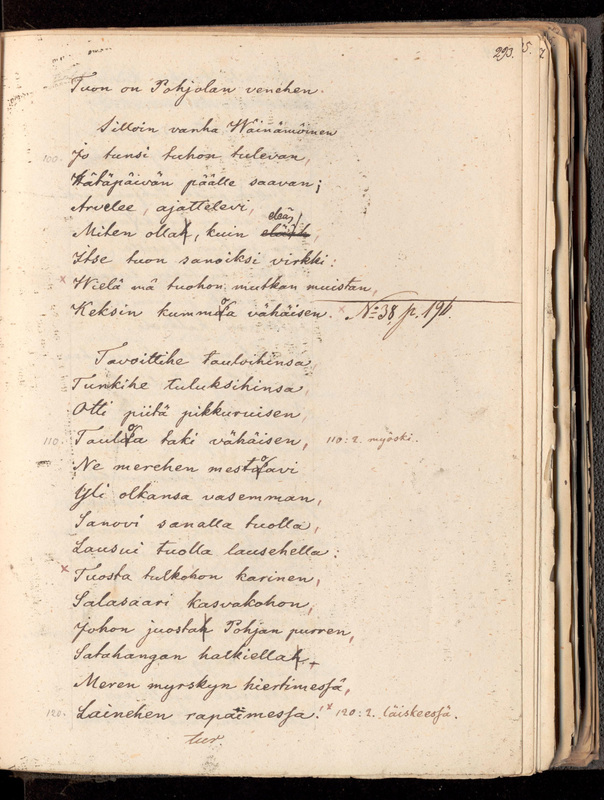 293. 5. 7
Tuon on Pohjolan venehen.
Silloin vanha Wäinämöinen
100. Jo tunsi tuhon tulevan,
Hätäpäivän päälle saavan;
Arvelee, ajattelevi,
eleä,
Miten ollah, kuin eleäh,
Itse tuon sanoiksi virkki:
x Wielä mä tuohon mutkan muistan,
Keksin kummoa vähäisen. No 38, p. 196.
Tavoittihe tauloihinsa
Tunkihe tuluksihinsa
Otti piitä pikkuruisen,
110. Tauloa taki vähäisen, 110: 2. myöski.
Ne merehen mestoavi
Yli olkansa vasemman,
Sanovi sanalla tuolla,
Lausui tuolla lausehella:
x Tuosta tulkohon karinen,
Salasaari kasvakohon,
Johon juostah Pohjan purren,
Satahangan halkiellah, +
Meren myrskyn hiertimessä,
120. Lainehen rapaimessa! x 120: 2. läiskeessä.
tur